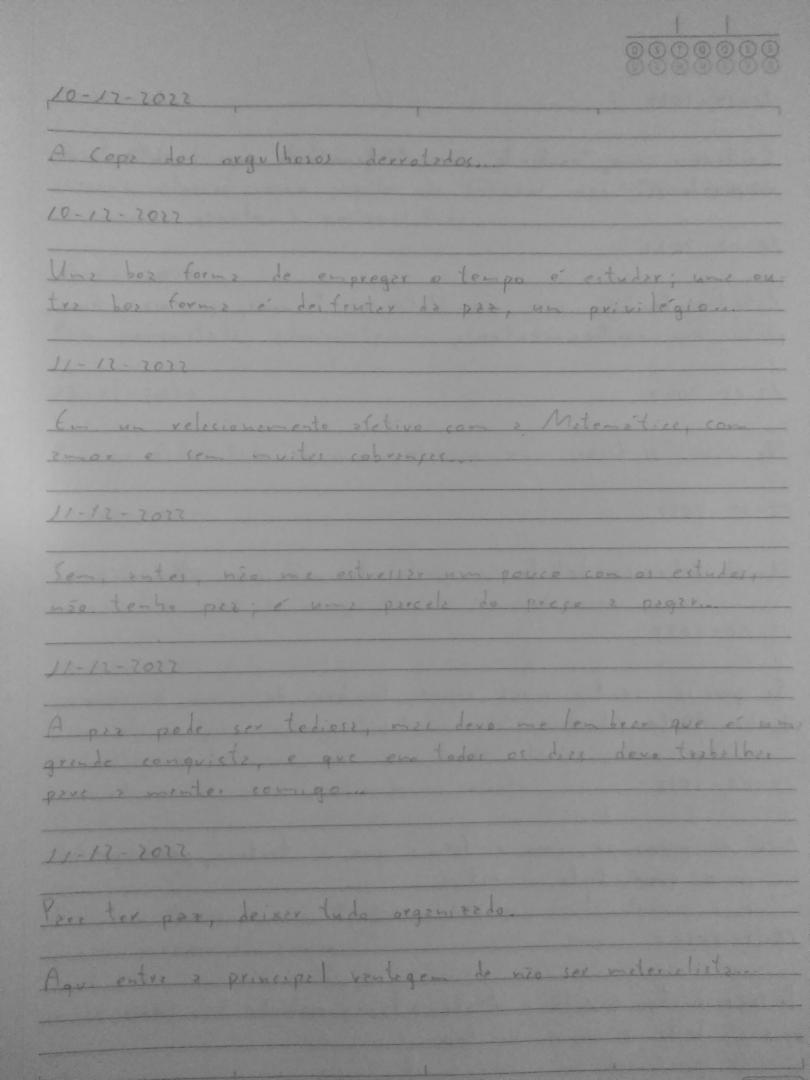 D S T Q Q S S
D S T Q Q S S
10-12-2022
A Copa dos orgulhosos derrotados...
10-12-2022
Uma boa forma de empregar o tempo é estudar; uma ou-
tra boa forma é desfrutar da paz, um privilégio...
11-12-2022
Em um relacionamento afetivo com a Matemática, com
amor e sem muitas cobranças...
11-12-2022
Sem, antes, não me estressar um pouco com os estudos,
não tenho paz; é uma parcela do preço a pagar...
11-12-2022
A paz pode ser tediosa, mas devo me lembrar que é uma
grande conquista, e que em todos os dias devo trabalhar
para a manter comigo...
11-12-2022
Para ter paz, deixar tudo organizado.
Aqui entra a principal vantagem de não ser materialista...